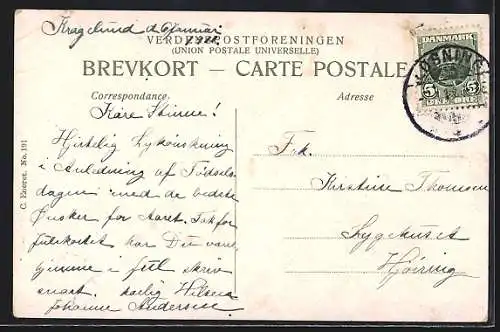 Kragelund d 6 Januar
1908.
VERDENSPOSTFORENINGEN
(UNION POSTALE UNIVERSELLE)
BREVKORT – CARTE POSTALE
DANMARK
5 5
ØRE
Correspondance.
Adresse
Kære Stinne!
Hjertelig Lykønskning
i Anledning af Fødsels-
dagen med de bedste
Ønsker for Aaret. Tak for
Julekortet har Du været
hjemme i Jul skriv
snart. kærlig Hilsen
Johanne Andersen
Frk.
Kirstine Thomsen
Sygehuset
Hjøring
C. Eneret. No. 191